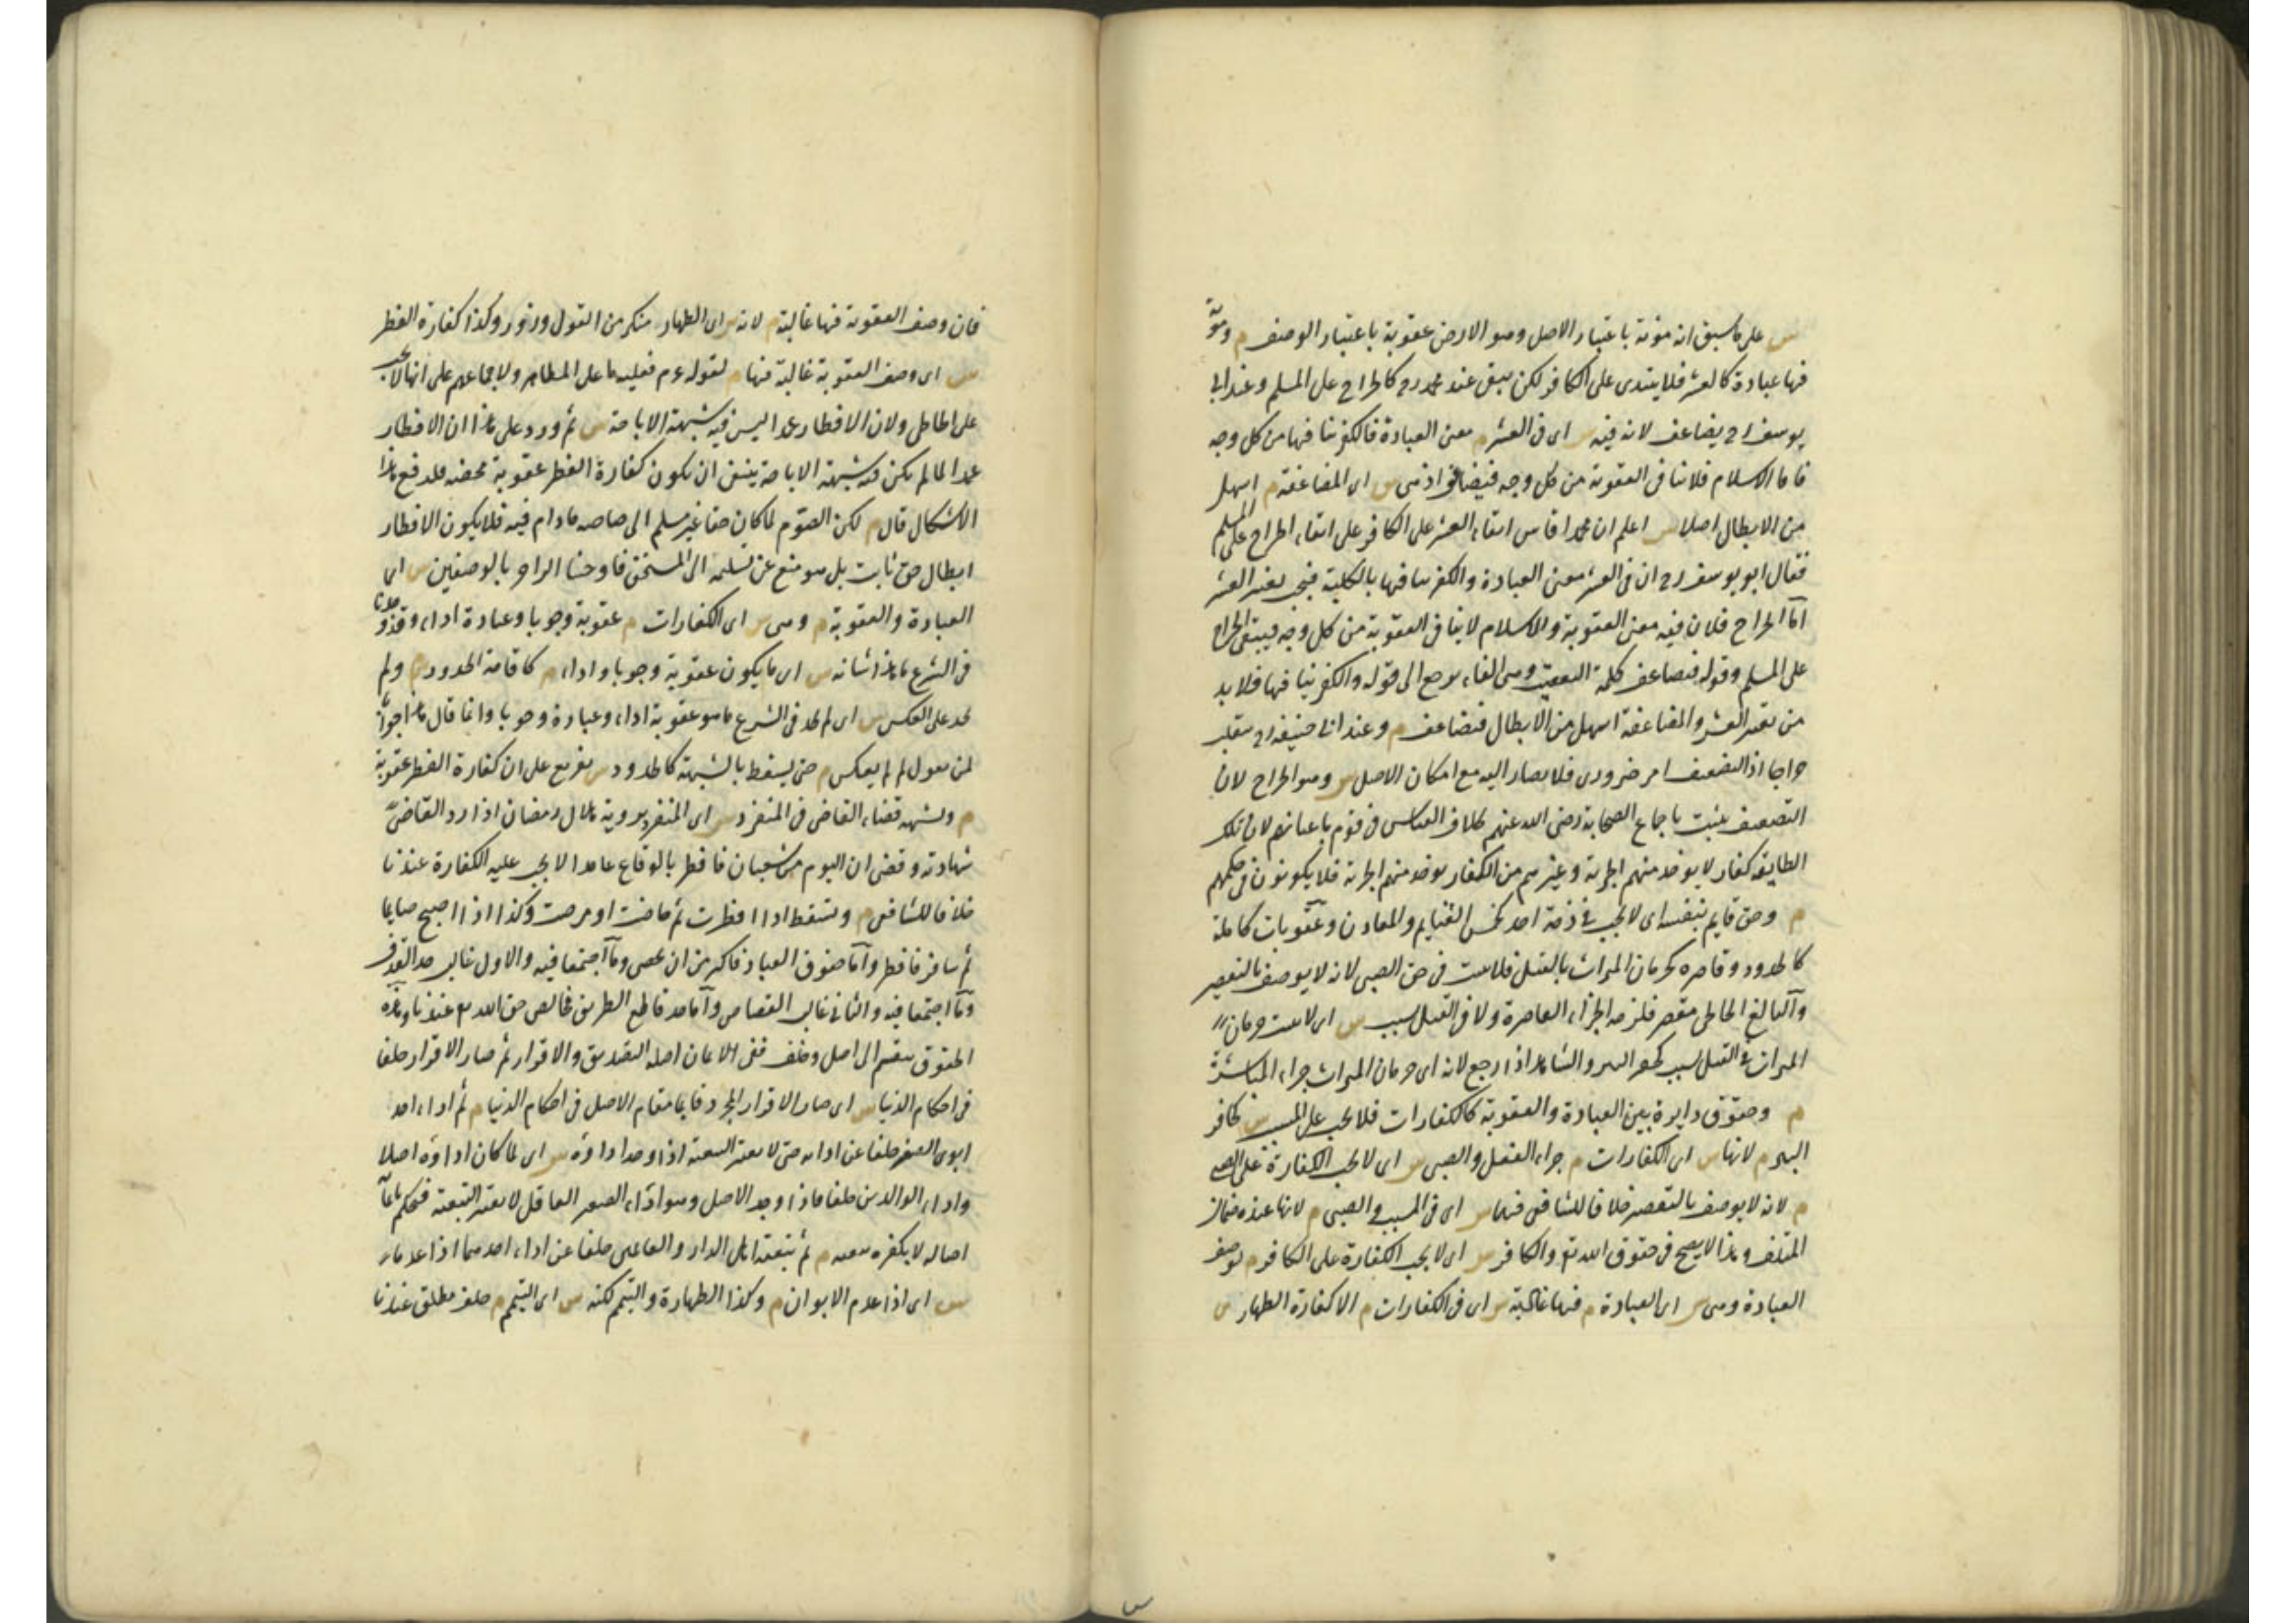 س على ما سبق انه مؤنة باعتبار الاصل وهو الارض عقوبة باعتبار الوصف م ومؤنة
فيها عبادة كالعشر فلا يبتدى على الكافر لكن يبقى عند محمد رح كالخراج على المسلم وعند ابى
يوسف رح يضاعف لانه فيه س اى فى العشر م معنى العبادة فالكفر ينافيها من كل وجه
فاما الاسلام فلا ينافى العقوبة من كل وجه فيضاعف اذ هى س اى المضاعفة م اسهل
من الابطال اصلا س اعلم ان محمدا قاس ابقاء العشر على الكافر على ابقاء الخراج على المسلم
فقال ابو يوسف رح ان فى العشر معنى العبادة والكفر ينافيها بالكلية فيجب تغيير العشر
اما الخراج فلان فيه معنى العقوبة والاسلام لا ينافى العقوبة من كل وجه فيبقى الخراج
على المسلم وقوله فيضاعف كلمة التعقيب وهى الفاء يرجع الى قوله والكفر ينافيها فلا بد
من تغيير العشر والمضاعفة اسهل من الابطال فيضاعف م وعند ابى حنيفة رح ينقلب
خراجا اذ التضعيف امر ضرورى فلا يصار اليه مع امكان الاصل س وهو الخراج لان
التضعيف يثبت باجماع الصحابة رضى الله عنهم بخلاف القياس فى قوم باعيانهم لان تلك
الطايفة كفار لا يوخذ منهم الجزية وغيرهم من الكفار يوخذ منهم الجزية فلا يكونون فى حكمهم
م وحق قايم بنفسه اى لا يجب فى ذمة احد كخمس الغنايم والمعادن وعقوبات كاملة
كالحدود وقاصرة كحرمان الميراث بالقتل فلا يثبت فى حق الصبى لانه لا يوصف بالتقصير
والبالغ الخاطى مقصر فلزمه الجزاء القاصرة ولا فى القتل بسبب س اى لا يثبت حرمان
الميراث فى القتل بسبب كحفر البير والشاهد اذا رجع لانه اى حرمان الميراث جزاء المباشرة
م وحقوق دايرة بين العبادة والعقوبة كالكفارات فلا يجب على المسبب س كحافر
البير م لانها س اى الكفارات م جزاء الفعل والصبى س اى لا يجب الكفارة على الصبى
م لانه لا يوصف بالتقصير خلافا للشافعى فيهما س اى فى المسبب والصبى م لانها عنده ضمان
المتلف وهذا لا يصح فى حقوق الله تع والكافر س اى لا يجب الكفارة على الكافر م لوصف
العبادة وهى س اى العبادة م فيها غالبة س اى فى الكفارات م الا كفارة الظهار س
فان وصف العقوبة فيها غالبة م لانه س اى الظهار منكر من القول وزور وكذا كفارة الفطر
س اى وصف العقوبة غالبة فيها م لقوله ءم فعليه ما على المظاهر ولاجماعهم على انها لا تجب
على الخاطى ولان الافطار عمدا ليس فيه شبهة الاباحة س ثم ورد على هذا ان الافطار
عمدا لما لم يكن فيه شبهة الاباحة ينبغى ان يكون كفارة الفطر عقوبة محضة فلدفع هذا
الاشكال قال م لكن الصوم لما كان حقا غير مسلم الى صاحبه مادام فيه فلا يكون الافطار
ابطال حق ثابت بل هو منع عن تسليمه الى المستحق فاوجبنا الزاجر بالوصفين س اى
العبادة والعقوبة م وهى س اى الكفارات م عقوبة وجوبا وعبادة اداء وقد وجدنا
فى الشرع ما هذا شانه س اى ما يكون عقوبة وجوبا واداء م كاقامة الحدود م ولم
نجد على العكس س اى لم نجد فى الشرع ما هو عقوبة اداء وعبادة وجوبا وانما قال هذا جوابا
لمن يقول لم لم يعكس م حتى يسقط بالشبهة كالحدود س تفريع على ان كفارة الفطر عقوبة
م وبشبهة قضاء القاضى فى المنفرد س اى المنفرد برؤية هلال رمضان اذا رد القاضى
شهادته وقضى ان اليوم من شعبان فافطر بالوقاع عامدا لا يجب عليه الكفارة عندنا
خلافا للشافعى م ويسقط اذا افطرت ثم حاضت او مرضت وكذا اذا اصبح صايما
ثم سافر فافطر واما حقوق العباد فاكثر من ان تحصى وما اجتمعا فيه والاول غالب حد القذف
وما اجتمعا فيه والثانى غالب القصاص واما حد قاطع الطريق فخالص حق الله تع عندنا وهذه
الحقوق ينقسم الى اصل وخلف ففى الايمان اصله التصديق والاقرار ثم صار الاقرار خلفا
فى احكام الدنيا س اى صار الاقرار المجرد قايما مقام الاصل فى احكام الدنيا م ثم اداء احد
ابوى الصغير خلفا عن ادائه حتى لا يعتبر التبعية اذا وجد اداؤه س اى لما كان اداؤه اصلا
واداء الوالدين خلفا فاذا وجد الاصل وهو اداء الصغير العاقل لا يعتبر التبعية فيحكم بايمانه
اصالة لا بكفره تبعية م ثم تبعية اهل الدار والغانمين خلفا عن اداء احدهما اذا عدما
س اى اذا عدم الابوان م وكذا الطهارة والتيمم لكنه س اى التيمم م خلف مطلق عندنا